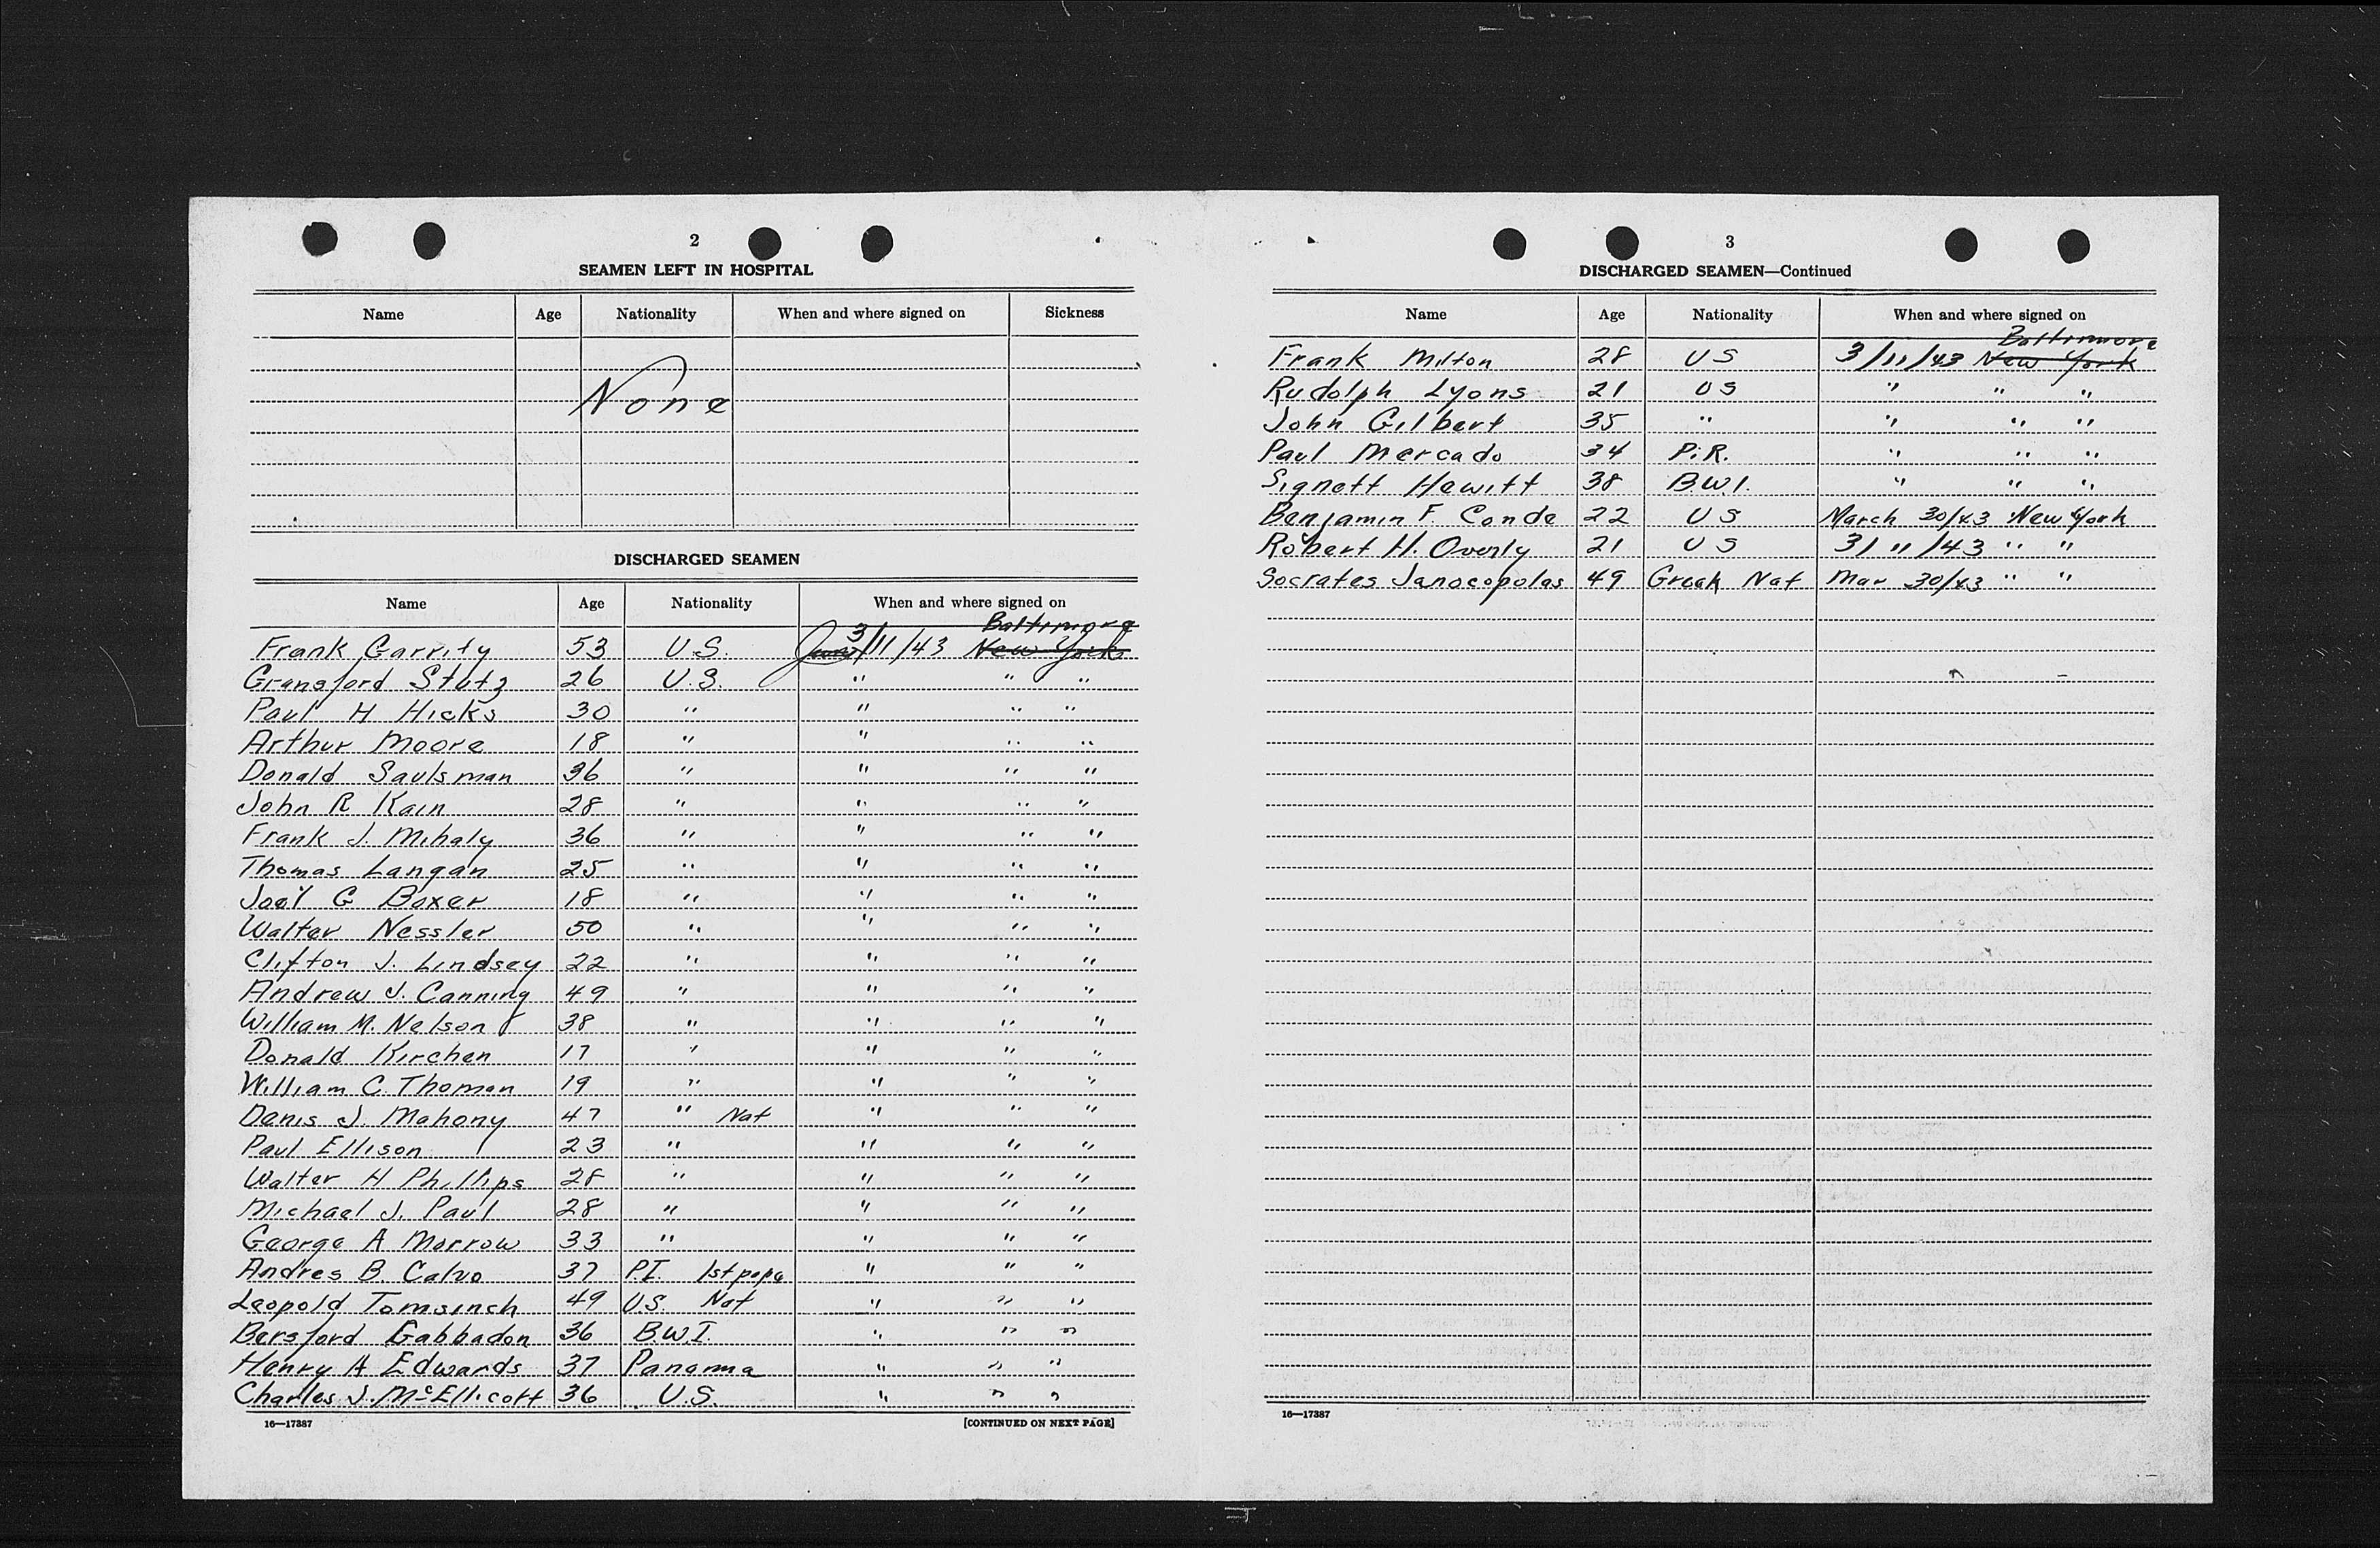 2
SEAMEN LEFT IN HOSPITAL
Name Age Nationality When and where signed on Sickness
None
DISCHARGED SEAMEN
Name Age Nationality When and where signed on
Baltimore
Frank Garrity 53 U.S. 3/11/43 New York
Gransford Stutz 26 U.S. " " "
Paul H Hicks 30 " " " "
Arthur Moore 18 " " " "
Donald Saulsman 36 " " " "
John R Kain 28 " " " "
Frank J. Mihaly 36 " " " "
Thomas Langan 25 " " " "
Joel G Boxer 18 " " " "
Walter Nessler 50 " " " "
Clifton J. Lindsey 22 " " " "
Andrew J. Canning 49 " " " "
William M. Nelson 38 " " " "
Donald Kirchen 17 " " " "
William C. Thoman 19 " " " "
Denis J. Mahony 47 " Nat " " "
Paul Ellison 23 " " " "
Walter H Phillips 28 " " " "
Michael J. Paul 28 " " " "
George A Morrow 33 " " " "
Andres B. Calvo 37 P.I. 1st pape " " "
Leopold Tomsinch 49 U.S. Nat " " "
Bersford Gabbadon 36 B.W.I. " " "
Henry A Edwards 37 Panama " " "
Charles J. McEllicott 36 U.S. " " "
16—17387 [CONTINUED ON NEXT PAGE]
3
DISCHARGED SEAMEN—Continued
Name Age Nationality When and where signed on
Baltimore
Frank Milton 28 US 3/11/43 New York
Rudolph Lyons 21 US " " "
John Gilbert 35 " " " "
Paul Mercado 34 P.R. " " "
Signett Hewitt 38 B.W.I. " " "
Benjamin F. Conde 22 US March 30/43 New York
Robert H. Overly 21 US 3/11/43 " "
Socrates Janocopolas 49 Greek Nat Mar 30/43 " "
16—17387